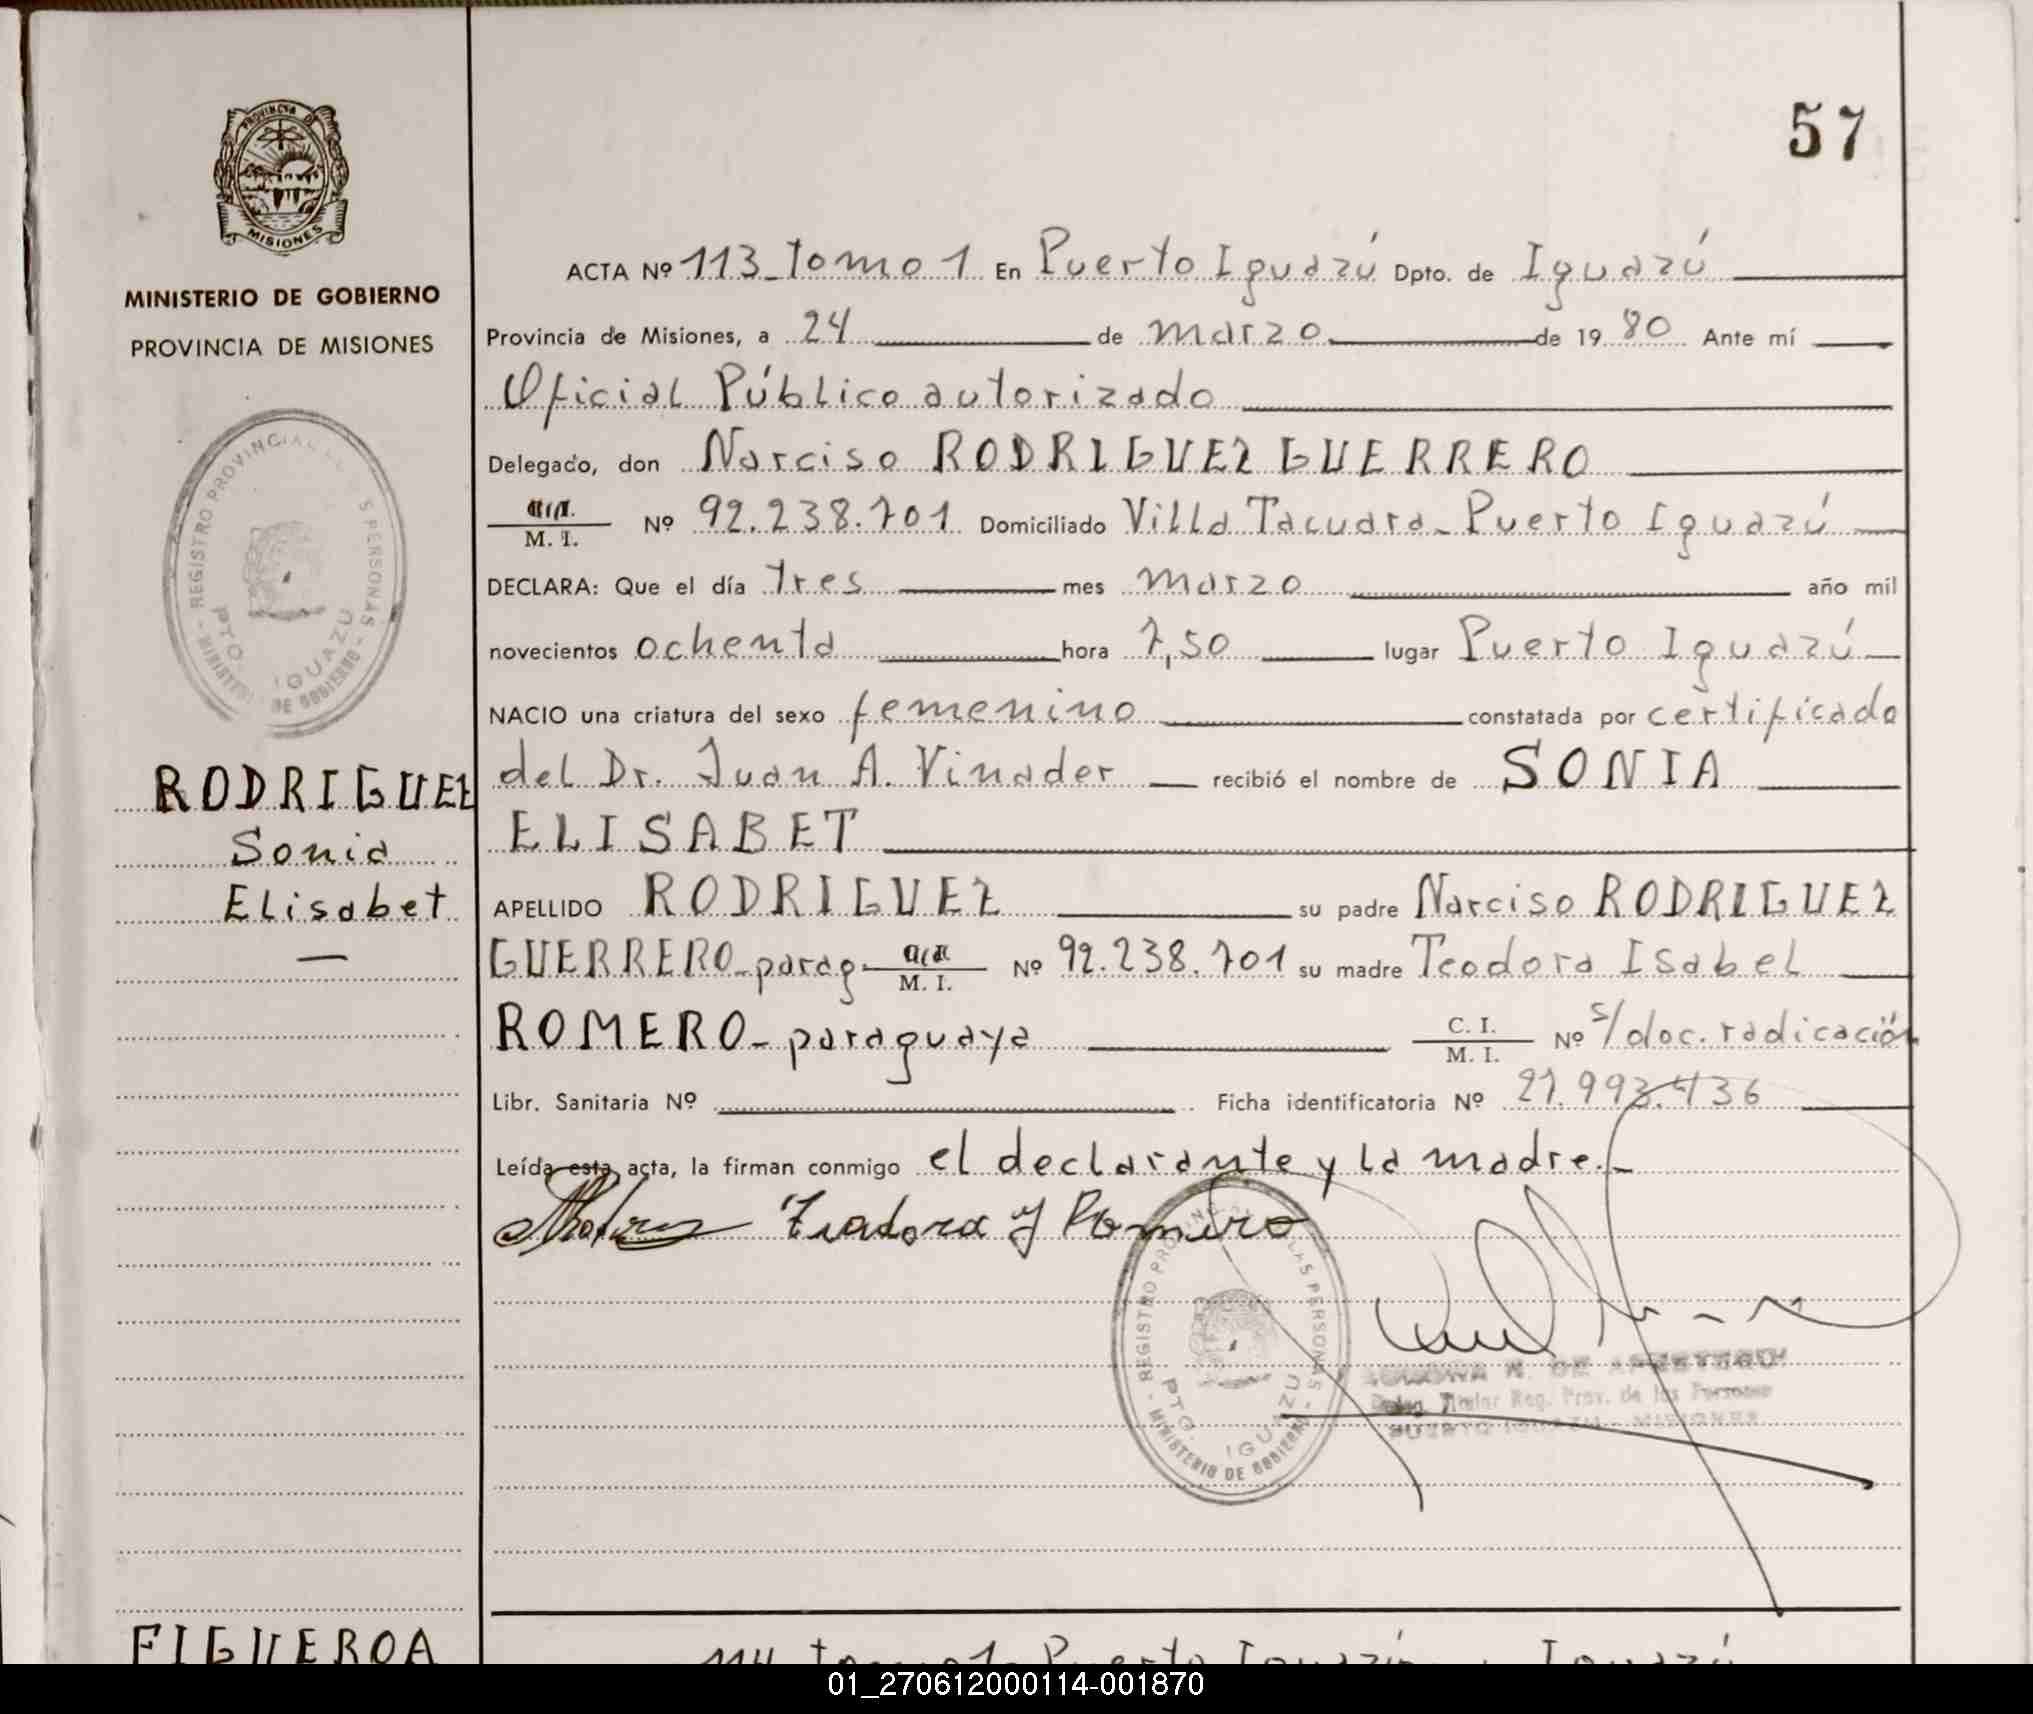 57
PROVINCIA DE
MISIONES
MINISTERIO DE GOBIERNO
PROVINCIA DE MISIONES
REGISTRO PROVINCIAL DE LAS PERSONAS - MINISTERIO DE GOBIERNO -
PTO. IGUAZU
RODRIGUEZ
Sonia
Elisabet
ACTA Nº 113 - tomo 1 En Puerto Iguazú Dpto. de Iguazú
Provincia de Misiones, a 24 de marzo de 19 80 Ante mí
Oficial Público autorizado
Delegado, don Narciso RODRIGUEZ GUERRERO
M. I. Nº 92.238.701 Domiciliado Villa Tacuara - Puerto Iguazú
DECLARA: Que el día tres mes marzo año mil
novecientos ochenta hora 7,50 lugar Puerto Iguazú
NACIO una criatura del sexo femenino constatada por certificado
del Dr. Juan A. Vinader recibió el nombre de SONIA
ELISABET
APELLIDO RODRIGUEZ su padre Narciso RODRIGUEZ
GUERRERO - parag. M. I. Nº 92.238.701 su madre Teodora Isabel
ROMERO - paraguaya C. I. M. I. Nº s/doc. radicación
Libr. Sanitaria Nº Ficha identificatoria Nº 27.993.436
Leída esta acta, la firman conmigo el declarante y la madre. -
Teadora y Romero
REGISTRO PROVINCIAL DE LAS PERSONAS - MINISTERIO DE GOBIERNO -
PTO. IGUAZU
N. DE
Deleg. Titular Reg. Prov. de las Personas
PUERTO IGUAZU - MISIONES
FIGUEROA
114 tomo 1 Puerto Iguazú Iguazú
01_270612000114-001870